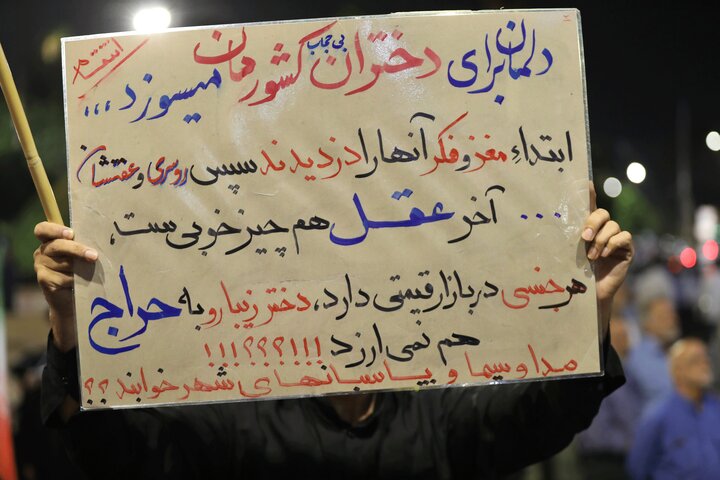 انتقام
دلمان برای دختران بی حجاب کشورمان
میسوزد ،،،
ابتداءِ مغز و فکر آنها را دزدیدند سپس روسری و عفتشان
... آخر عقل هم چیز خوبی ست،
هر جنسی در بازار قیمتی دارد، دختر زیبارو به حراج
هم نمی ارزد !!!؟؟؟!!!
صدا و سیما و پاسبانهای شهر خوابند ؟؟